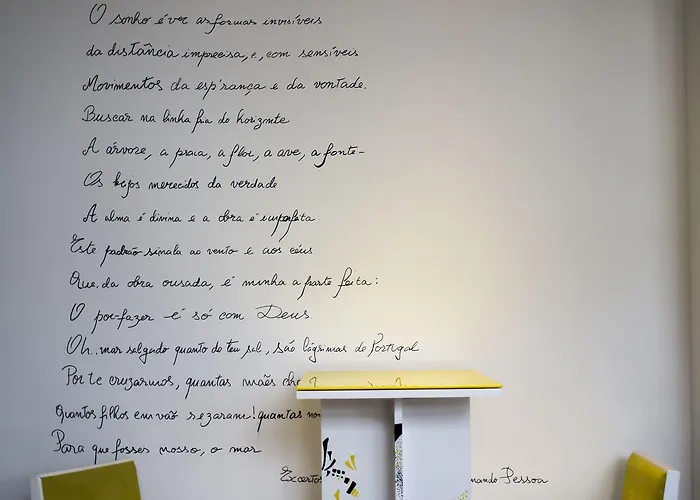 O sonho é ver as formas invisíveis
da distância imprecisa, e, com sensíveis
Movimentos da esp'rança e da vontade,
Buscar na linha fria do horizonte
A árvore, a praia, a flor, a ave, a fonte-
Os beijos merecidos da verdade
A alma é divina e a obra é imperfeita
Este padrão sinala ao vento e aos céus
Que, da obra ousada, é minha a parte feita:
O por-fazer é só com Deus.
Oh, mar salgado quanto do teu sal, são lágrimas de Portugal
Por te cruzarmos, quantas mães
Quantos filhos em vão rezaram! quantas
Para que fosses nosso, o mar
Pessoa